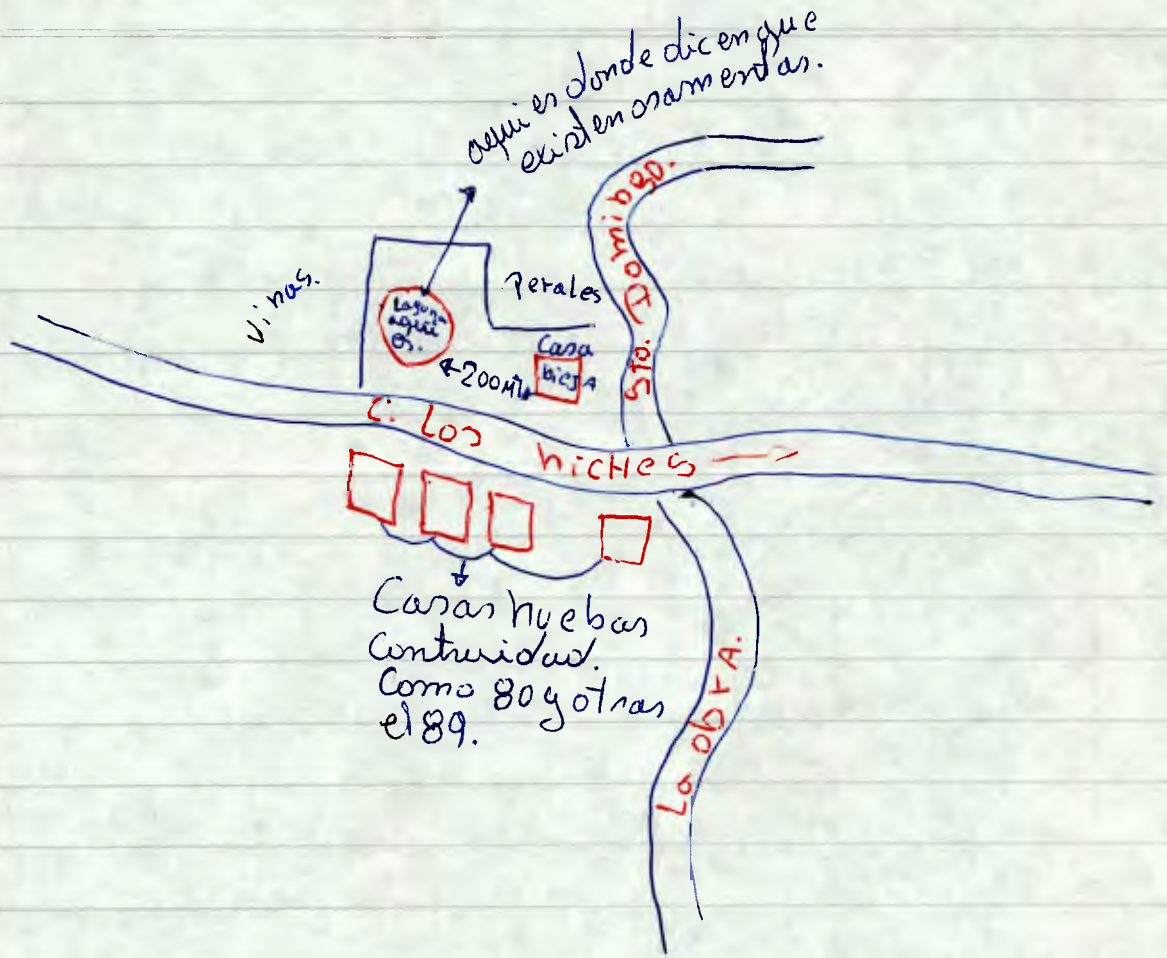 aqui es donde dicen que
existen osamentas.
Sto. Domibgo.
viñas.
Perales
Laguna
aqui
es.
Casa
bieja
200 Mt
C. Los niches
Casas nuebas
Contruidad.
Como 80 y otras
el 89.
La obra.